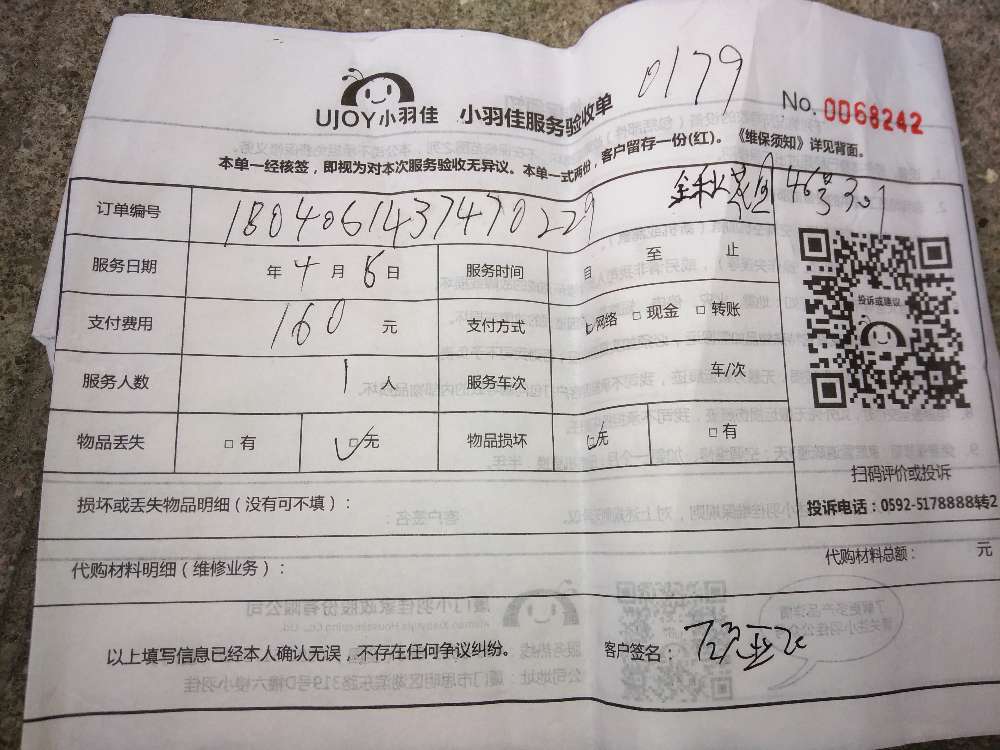 0179
UJOY小羽佳 小羽佳服务验收单 No. 0068242
本单一经核签，即视为对本次服务验收无异议。本单一式两份，客户留存一份(红)。《维保须知》详见背面。
46号301
订单编号 180406143747029
服务日期 年4月6日 服务时间 自 至 止
支付费用 160 元 支付方式 □网络 □现金 □转账
投诉或建议
服务人数 1人 服务车次 车/次
物品丢失 □有 □无 物品损坏 □无 □有
扫码评价或投诉
损坏或丢失物品明细（没有可不填）：
投诉电话：0592-5178888转2
代购材料明细（维修业务）： 代购材料总额： 元
以上填写信息已经本人确认无误，不存在任何争议纠纷。 客户签名：